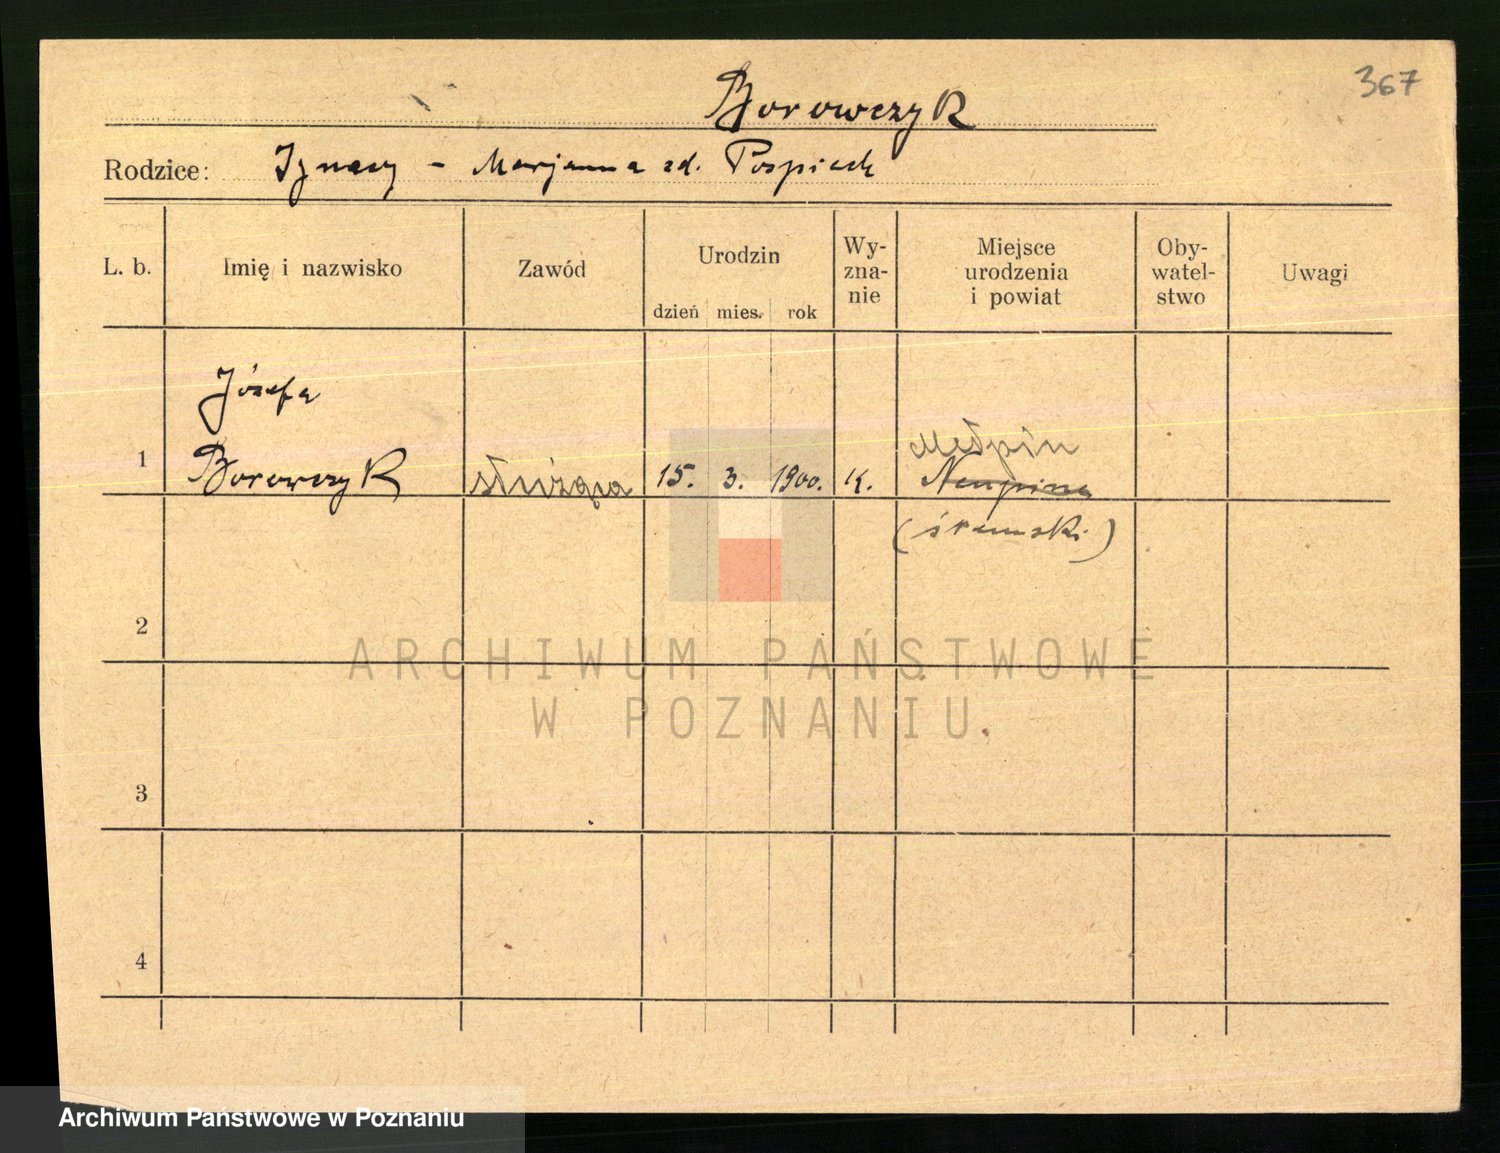 367
Borowczyk
Rodzice: Ignacy - Marjanna zd. Pospiech
L. b.
Imię i nazwisko
Zawód
Urodzin
dzień mies. rok
Wy-
zna-
nie
Miejsce
urodzenia
i powiat
Oby-
watel-
stwo
Uwagi
Józefa
1 Borowczyk służąca 15. 3. 1900. K.
Mełpin
(śremski)
2
3
4
ARCHIWUM PAŃSTWOWE
W POZNANIU
Archiwum Państwowe w Poznaniu